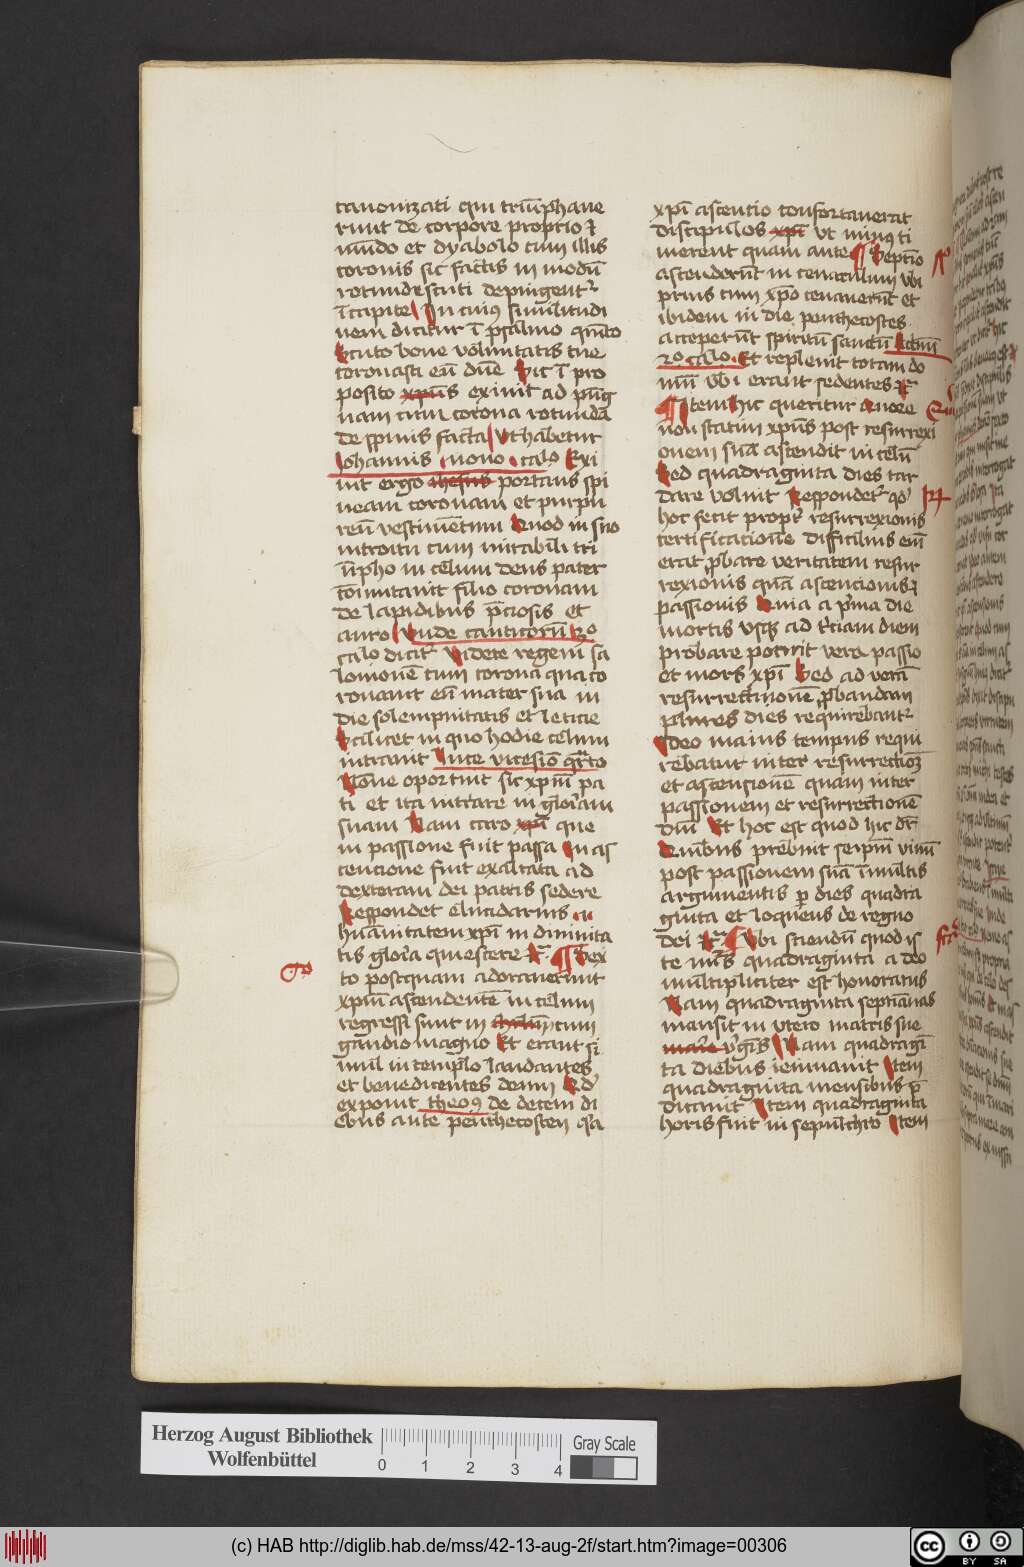 canonizati qui triūphaue
runt de corpore proprio ⁊
mūdo et dyabolo cum illis
coronis sic factis in modū
rotundi scuti depingentʳ
ī capite In cuius similitudi
nem dicitur ī psalmo quīto
Scuto bone volūntatis tue
coronasti eū dn̄e Sic ī pro
posito xp̄us exiuit ad pug
nam cum corona rotundā
de spinis facta Ut habetur
Johannis nono calo Exi
uit ergo ihesus portans spi
neam coronam et purpu
reū vestimētum Quod in suo
introitu cum mirabili tri
ūpho in celum deus pater
cōmutauit filio coronam
de lapidibus p̄ciosis et
auro Unde canticorū 3o
calo dicitʳ Videte regem sa
lomonē cum corona qua co
ronauit eū mater sua in
die solempnitatis et leticie
Scilicet in quo hodie celum
intrauit Luce vicesio qrto
None oportuit sic xpm̄ pa
ti et ita intrare in gloriam
suam Nam caro xpī que
in passione fuit passa In as
cencione fuit exaltata ad
dexteram dei patris sedere
Respondet elucidarius in
humanitatem xpī in diuinita
tis gloria quiescere R̄ Tex
to postquam adorauerunt
xpm̄ ascendentē in celum
regressi sunt in ihrlm̄ cum
gaudio magno Et erant si
mul in templo laudantes
et benedicentes deum Qd'
exponit theo9 de decem di
ebus ante penthecosten qa
xpī ascentio confortauerat
discipulos xpī ut minus ti
merent quam ante Septio
ascenderūt in cenaculum vbi
prius cum xpō cenauerūt et
ibidem in die penthecostes
acceperūt spiritū sanctū Actuū
2o calo Et repleuit totam do
mū vbi erant sedentes R̄
Item hic queritur Quore
non statim xp̄us post resurrexi
onem suā ascendit in celū
Sed quadraginta dies tar
dare voluit Respondetʳ qd'
hoc fecit propt' resurrexionis
certificatione difficilius eni
erat probare veritatem resur
rexionis quā ascencionis ⁊
passionis Quia a p'ma die
mortis vsq ad t'ciam diem
probare potuit vera passio
et mors xpī Sed ad verā
resurrectionē probandam
plures dies requirebantʳ
Ideo maius tempus requi
rebatur inter resurrectioꝫ
et ascensionē quam inter
passionem et resurrectionē
dnī Et hoc est quod hic dr̄
Quibus prebuit seipm̄ viuū
post passionem suā ī multis
argumentis p̱ dies quadra
ginta et loquens de regno
dei R̄ Ubi sciendū quod is
te nūs quadraginta a deo
multipliciter est honoratus
Nam quadraginta septianas
mansit in vtero matris sue
marie v'gis Nam quadragi
ta diebus ieiunauit Item
quadraginta mensibus p̄
dicauit Item quadraginta
horis fuit in sepulchro Item
Herzog August Bibliothek
Wolfenbüttel
0 1 2 3 4
Gray Scale
(c) HAB http://diglib.hab.de/mss/42-13-aug-2f/start.htm?image=00306
cc BY SA